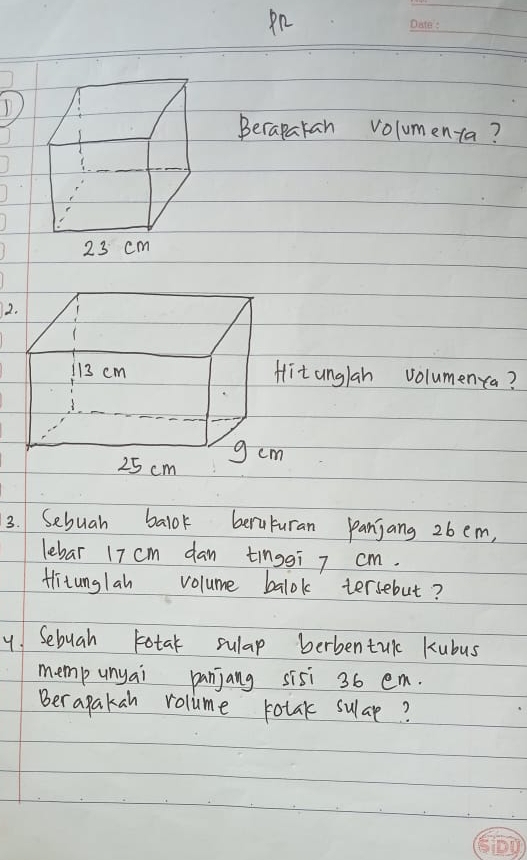 PR
Date :
1
Berapakah volumenya ?
23 cm
2.
13 cm
Hitunglah volumenya ?
9 cm
25 cm
3. Sebuah balok berukuran panjang 26 cm,
lebar 17 cm dan tinggi 7 cm.
Hitunglah volume balok tersebut ?
4. Sebuah kotak sulap berbentuk kubus
mempunyai panjang sisi 36 cm.
Berapakah volume kotak sulap ?
SiDU